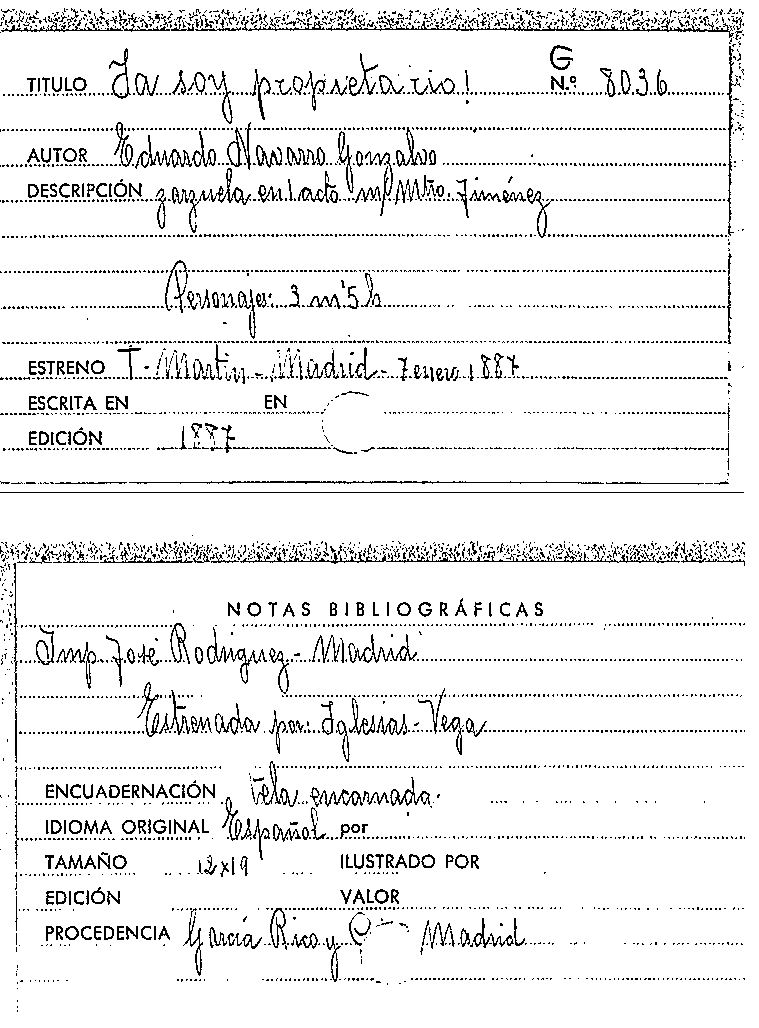 G
TITULO Ya soy propietario! N.º 8036
AUTOR Eduardo Navarro Gonzalvo
DESCRIPCIÓN zarzuela en 1 acto m/ Mtro. Jiménez
Personajes: 3 m 5 h
ESTRENO T. Martin - Madrid - 7 enero 1887
ESCRITA EN EN
EDICIÓN 1887
NOTAS BIBLIOGRÁFICAS
Imp José Rodriguez - Madrid
Estrenada por: Iglesias - Vega
ENCUADERNACIÓN tela encarnada.
IDIOMA ORIGINAL Español por
TAMAÑO 12x19 ILUSTRADO POR
EDICIÓN VALOR
PROCEDENCIA García Rico y Madrid